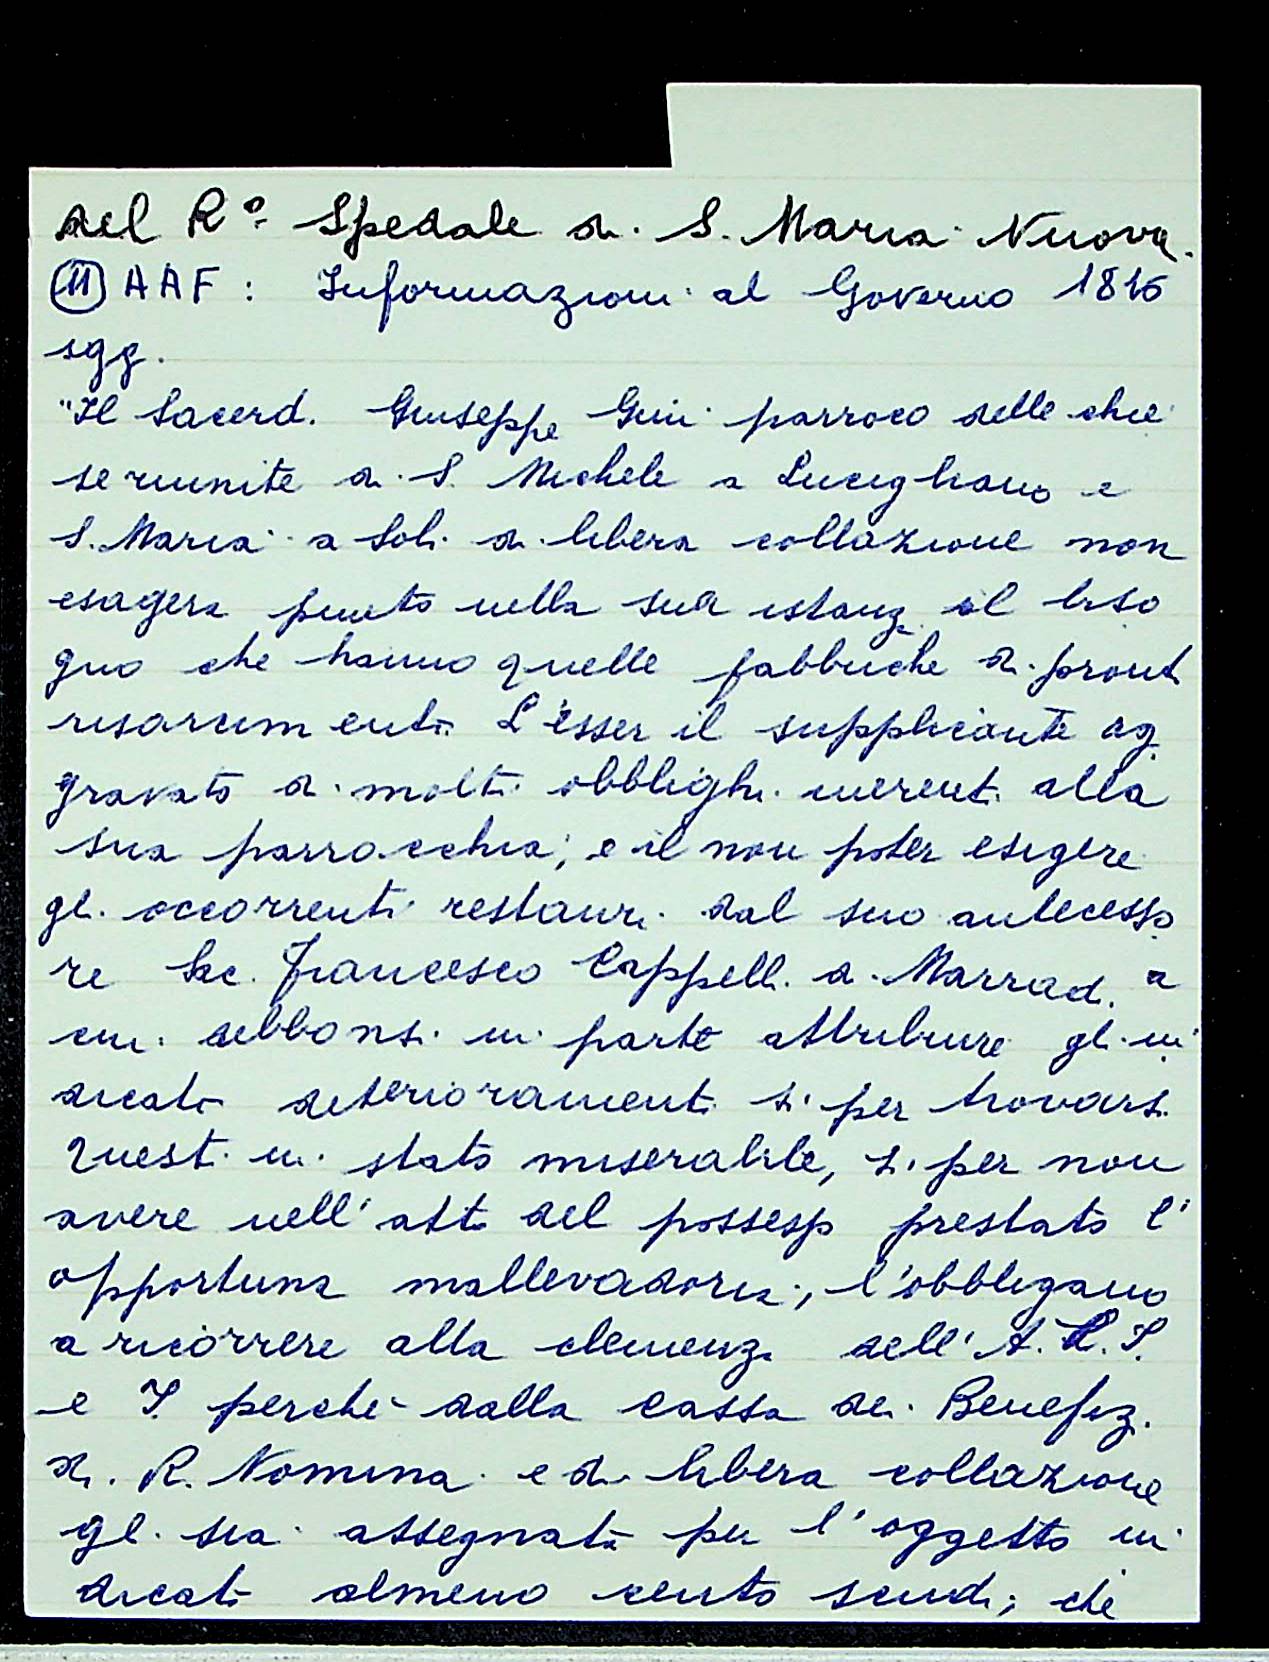 del R.º Spedale di S. Maria Nuova.
(11) AAF: Informazioni al Governo 1816
sgg.
"Il Sacerd. Giuseppe Guii parroco delle chie
se riunite di S. Michele a Lucigliano e
S. Maria a Soli di libera collazione non
esagera punto nella sua istanz. il biso
gno che hanno quelle fabbriche di pronti
risarcimenti. L'esser il supplicante ag
gravato di molti obblighi inerenti alla
sua parrocchia; e il non poter esigere
gli occorrenti restauri dal suo antecesso
re Sac. Francesco Cappelli di Marradi a
cui debbonsi in parte attribuire gli in
dicati deterioramenti sì per trovarsi
questi in stato miserabile, sì per non
avere nell'atto del possesso prestato l'
opportuna mallevadoria; l'obbligano
a ricorrere alla clemenza dell'A.R.I.
e I perché dalla cassa dei Benefiz.
di R. Nomina e di libera collazione
gli sia assegnata per l'oggetto in
dicato almeno cento scudi; che